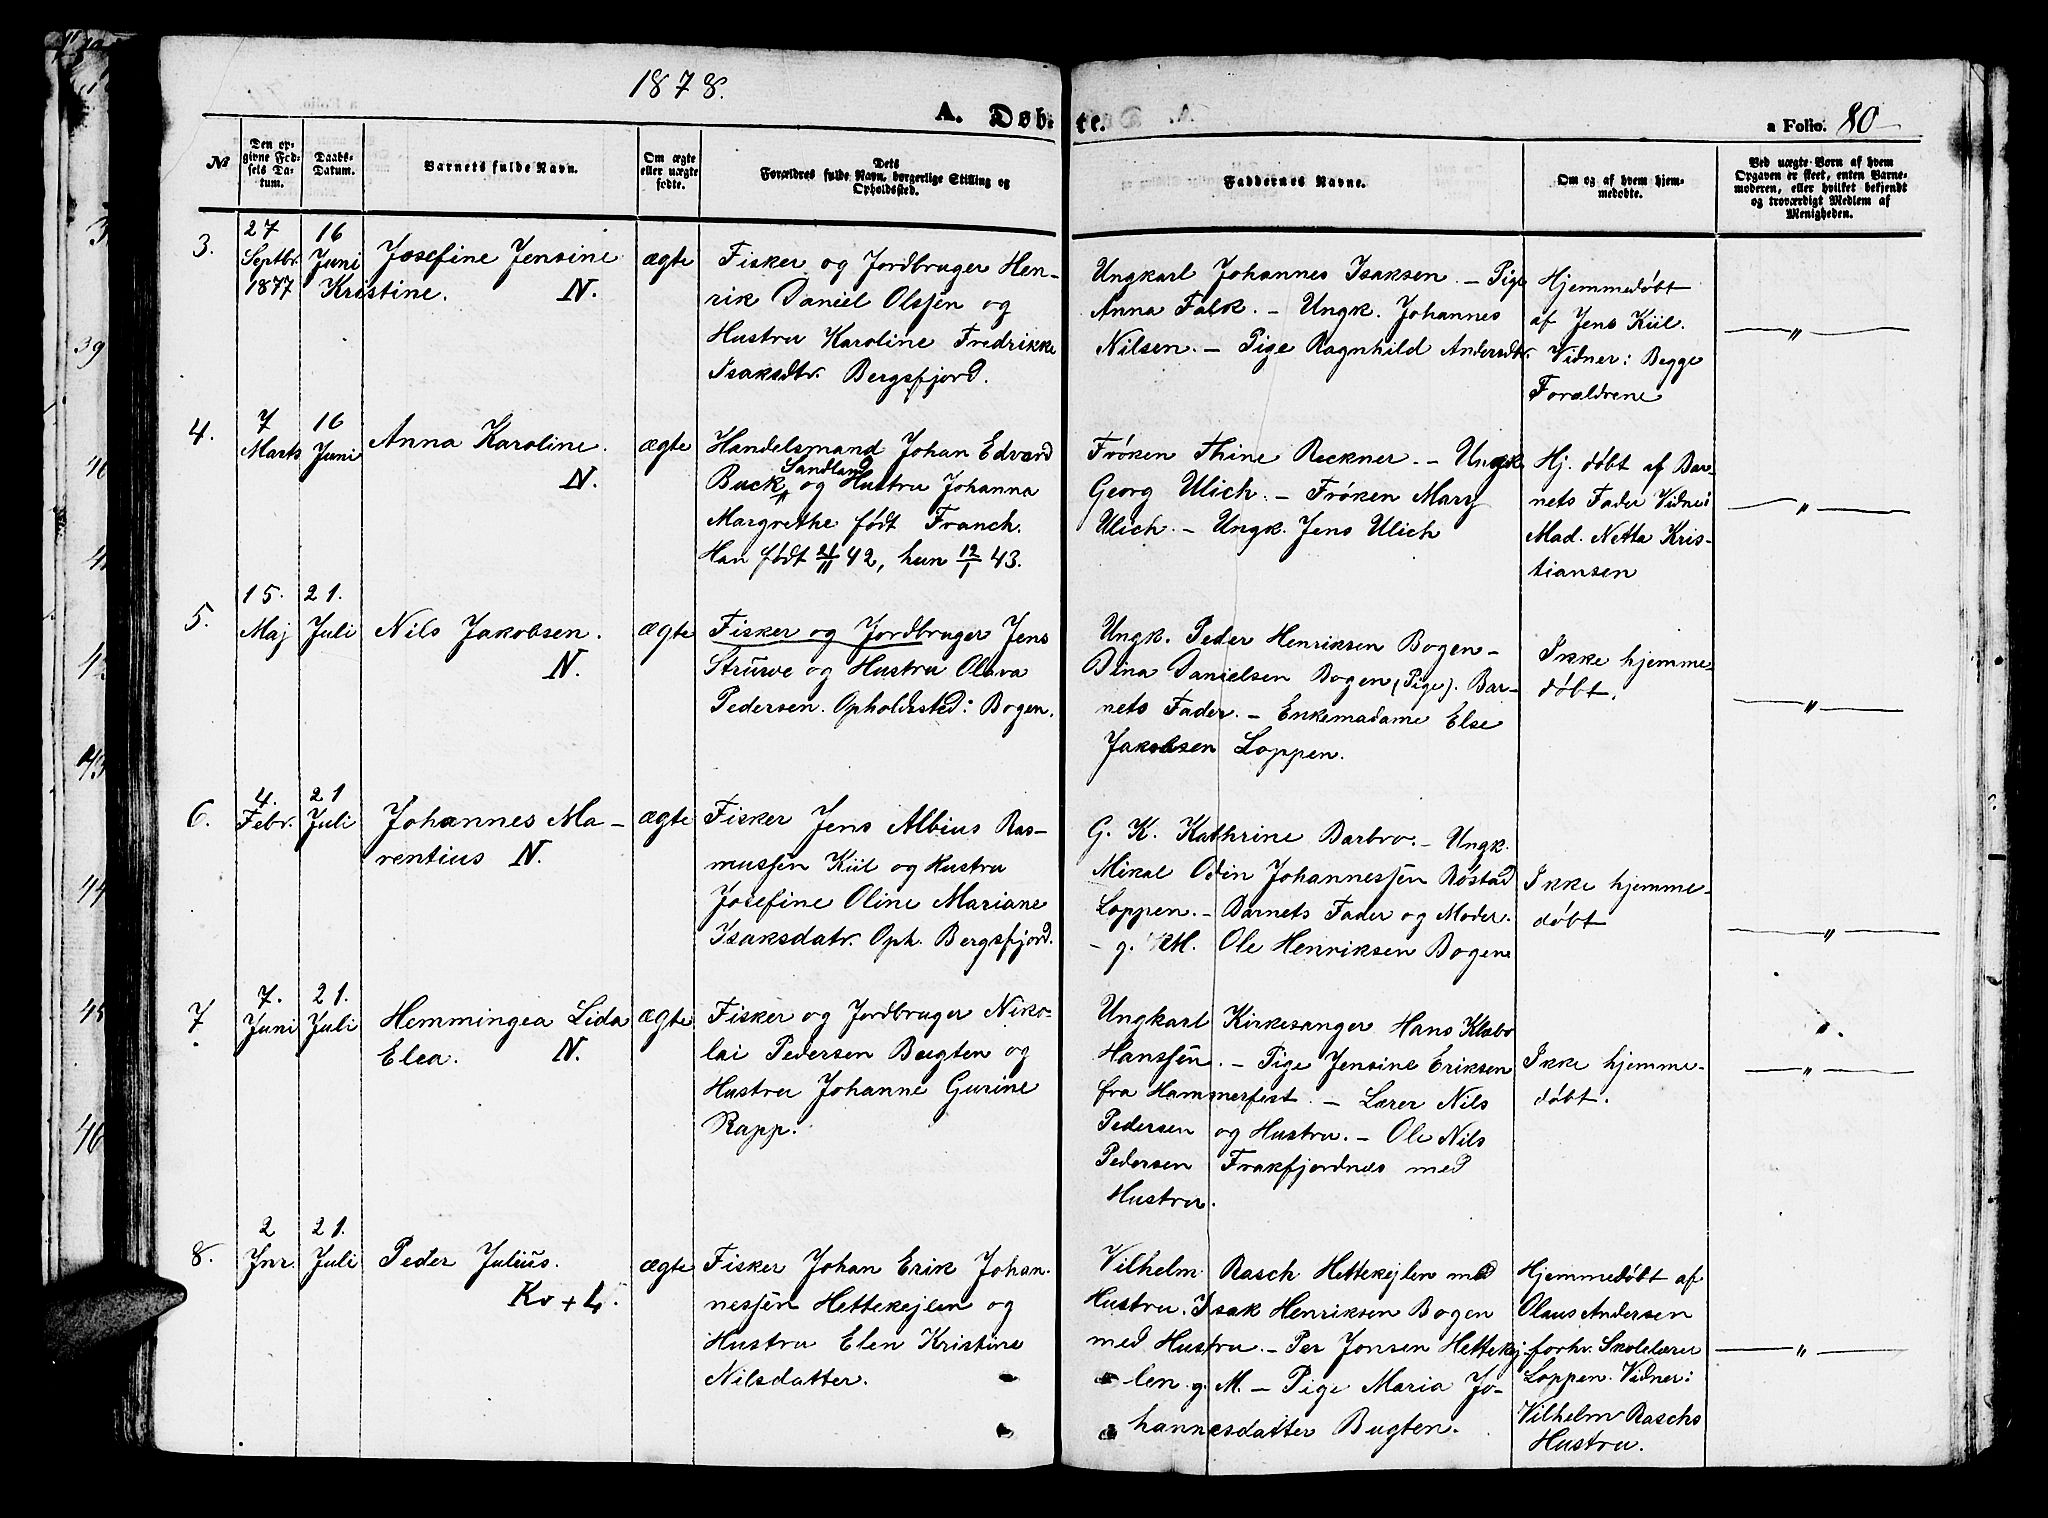 1878.
A. Døbte.
a Folio. 80
№
Den opgivne Fødsels Datum.
Daabs-Datum.
Barnets fulde Navn.
Om ægte eller uægte fødte.
Dets Forældres fulde Navn, borgerlige Stilling og Opholdssted.
Faddernes Navne.
Om og af hvem hjemmedøbte.
Ved uægte Børn af hvem Opgaven er skeet, enten Barnemoderen, eller hvilket bekjendt og troværdigt Medlem af Menigheden.
3.
27
Septbr.
1877
16
Juni
Josefine Jensine
Kristine. N.
ægte
Fisker og Jordbruger Hen-
rik Daniel Olssen og
Hustru Karoline Fredrikke
Isaksdtr. Bergsfjord.
Ungkarl Johannes Isaksen. — Pige
Anna Falk. — Ungk. Johannes
Nilsen. — Pige Ragnhild Andersdtr.
Hjemmedøbt
af Jens Kiil.
Vidner: Begge
Forældrene
— " —
4.
7
Marts
16
Juni
Anna Karoline.
N.
ægte
Handelsmand Johan Edvard
Sandland
Buck og Hustru Johanna
Margrethe født Franch.
Han født 21/11 42, hun 12/1 43.
Frøken Thine Reckner. — Ungk.
Georg Ulich. — Frøken Mary
Ulich. — Ungk. Jens Ulich
Hj. døbt af Bar-
nets Fader Vidne:
Mad. Netta Kris-
tiansen
— " —
5.
15.
Maj
21.
Juli
Nils Jakobsen.
N.
ægte
Fisker og Jordbruger Jens
Struve og Hustru Olava
Pedersen. Opholdssted: Bogen.
Ungk. Peder Henriksen Bogen —
Dina Danielsen Bogen (Pige). Bar-
nets Fader. — Enkemadame Else
Jakobsen Loppen.
Ikke hjemme
døbt.
— " —
6.
4.
Febr.
21
Juli
Johannes Ma-
rentius N.
ægte
Fisker Jens Albius Ras-
mussen Kiil og Hustru
Josefine Oline Mariane
Isaksdatr. Oph. Bergsfjord.
G. K. Kathrine Barbro. — Ungk.
Mikal Odin Johannessen Røstad
Loppen. — Barnets Fader og Moder.
— g. M. Ole Henriksen Bogen
Ikke hjemme-
døbt
— " —
7.
7.
Juni
21.
Juli
Hemmingea Lida
Elea. N.
ægte
Fisker og Jordbruger Niko-
lai Pedersen Bugten og
Hustru Johanne Gurine
Rapp.
Ungkarl Kirkesanger Hans Klæbo
Hanssen. — Pige Jensine Eriksen
fra Hammerfest. — Lærer Nils
Pedersen og Hustru. — Ole Nils
Pedersen Frakfjordnes med
Hustru.
Ikke hjemme-
døbt.
— " —
8.
2
Jnr.
21.
Juli
Peder Julius.
Kv + L.
ægte
Fisker Johan Erik Johan-
nessen Hettekejlen og
Hustru Elen Kristine
Nilsdatter.
Vilhelm Rasch Hettekejlen med
Hustru. Isak Henriksen Bogen
med Hustru. — Per Jonsen Hettekej-
len g. M. — Pige Maria Jo-
hannesdatter Bugten.
Hjemmedøbt af
Olaus Andersen
forhv. Skolelærer
Loppen. Vidner:
Vilhelm Raschs
Hustru.
— " —
39
44
45
46